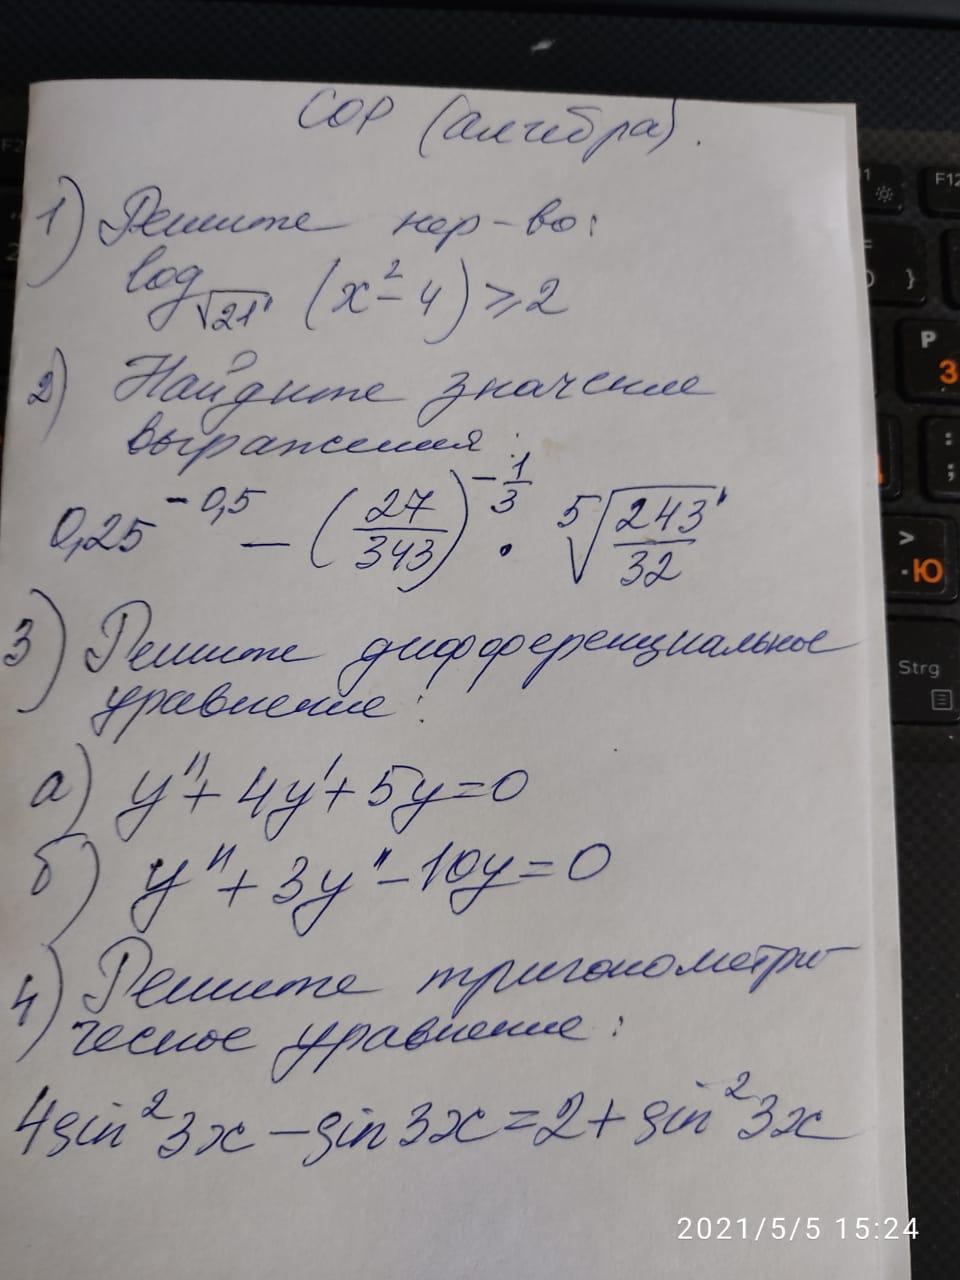 СОР (алгебра).
1) Решите нер-во:
log√21 (x²-4) ≥ 2
2) Найдите значение
выражения:
0,25^(-0,5) - (27/343)^(-1/3) · ⁵√(243/32)
3) Решите дифференциальное
уравнение:
а) y'' + 4y' + 5y = 0
б) y'' + 3y'' - 10y = 0
4) Решите тригонометри-
ческое уравнение:
4sin²3x - sin3x = 2 + sin²3x
F12
}
P
З
:
;
>
.
Ю
Strg
2021/5/5 15:24